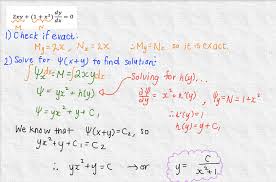 2xy + (1 + x²) dy/dx = 0
M N
1) Check if exact:
My = 2x, Nx = 2x ∴ My = Nx so it is exact.
2) Solve for Ψ(x+y) to find solution:
∫Ψx dx = ∫M = ∫2xy dx
Solving for h(y)...
Ψ = yx² + h(y)
∂Ψ/∂y = x² + h'(y), Ψy = N = 1+x²
Ψ = yx² + y + C₁
∴ h'(y) = 1
h(y) = y + C₁
We know that Ψ(x+y) = C₂, so
yx² + y + C₁ = C₂
∴ yx² + y = C → or y = C/(x²+1)